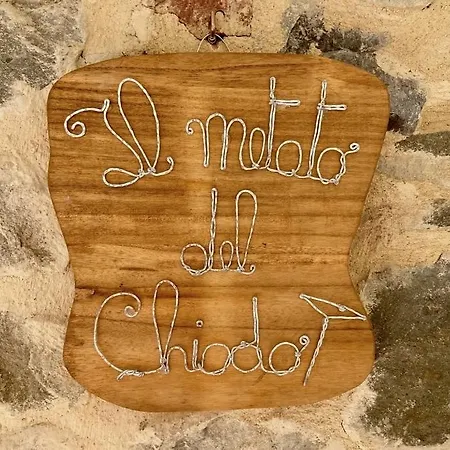 Il metato
del
Chiodo